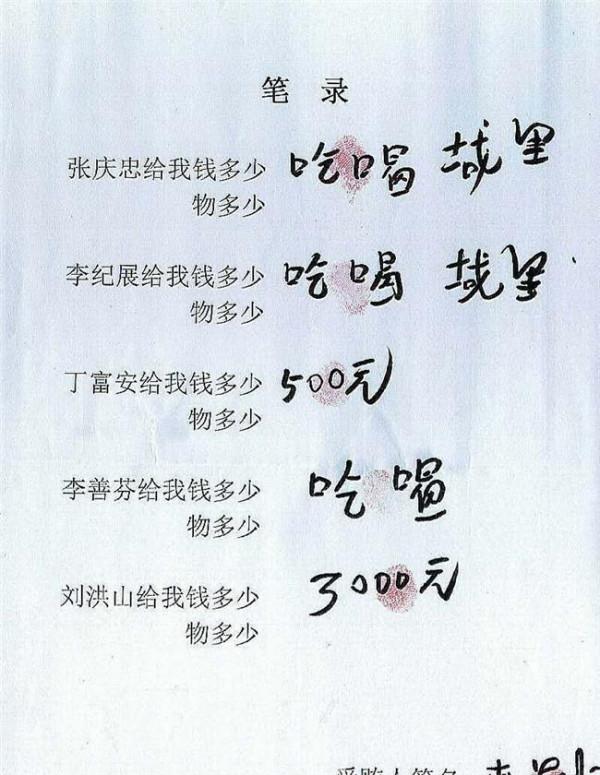 笔 录
张庆忠给我钱多少 吃喝 城里
物多少
李纪展给我钱多少 吃喝 城里
物多少
丁富安给我钱多少 500元
物多少
李善芬给我钱多少 吃喝
物多少
刘洪山给我钱多少 3000元
物多少
受贿人签名